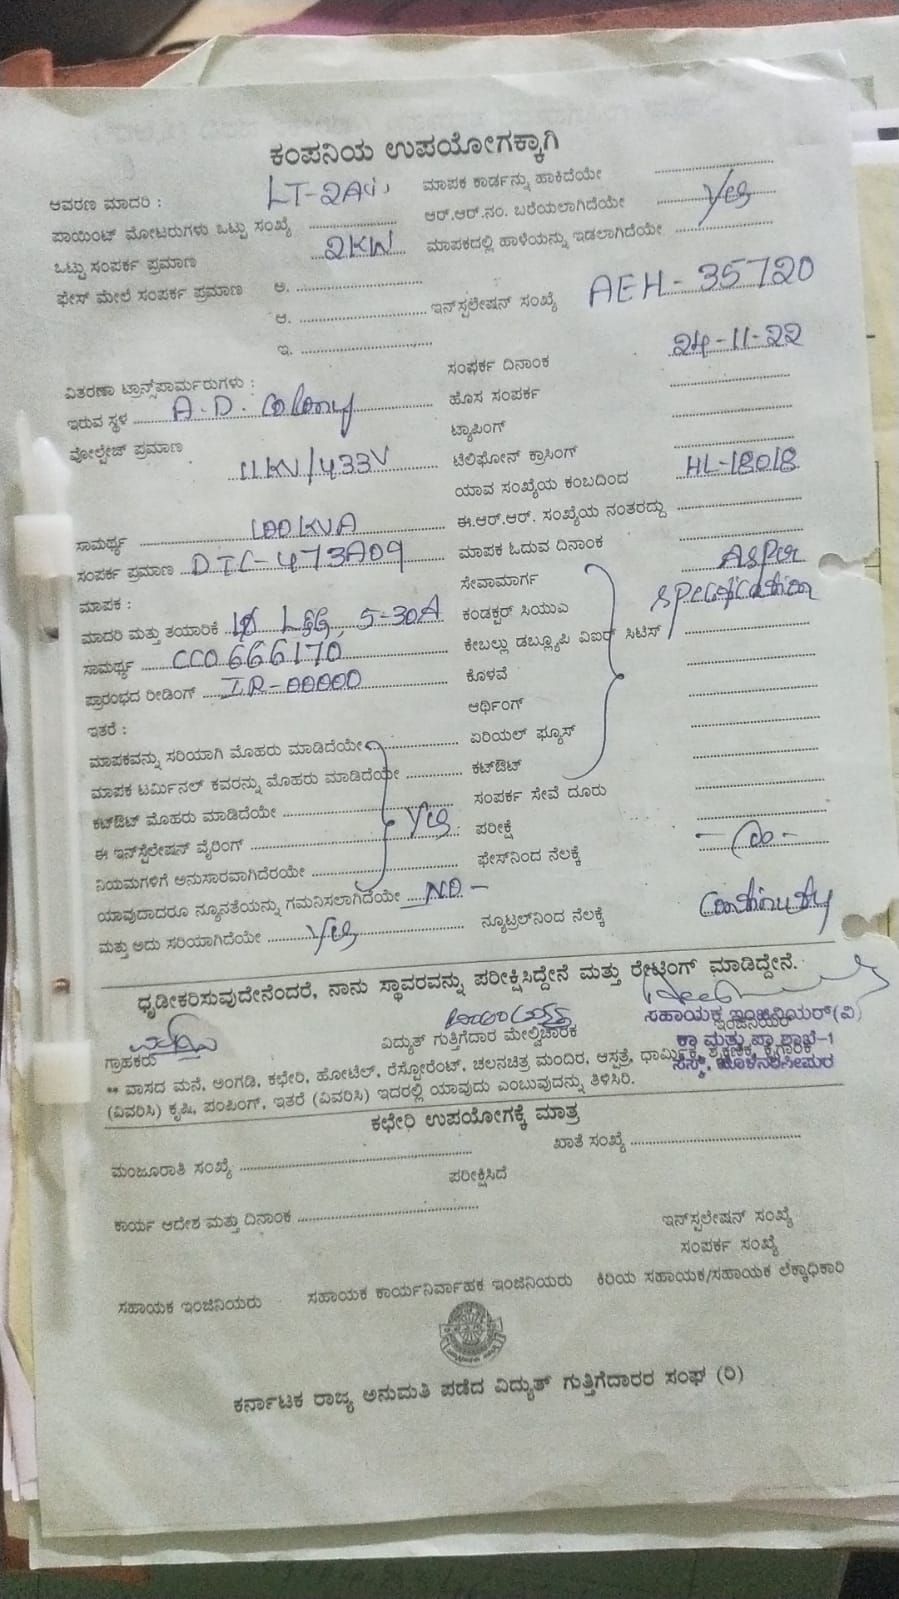 ಕಂಪನಿಯ ಉಪಯೋಗಕ್ಕಾಗಿ
ಆವರಣ ಮಾದರಿ : LT-2A(i) ಮಾಪಕ ಕಾರ್ಡನ್ನು ಹಾಕಿದೆಯೇ
ಪಾಯಿಂಟ್ ಮೋಟರುಗಳು ಒಟ್ಟು ಸಂಖ್ಯೆ ಆರ್.ಆರ್.ನಂ. ಬರೆಯಲಾಗಿದೆಯೇ Yes
ಒಟ್ಟು ಸಂಪರ್ಕ ಪ್ರಮಾಣ 2KW ಮಾಪಕದಲ್ಲಿ ಹಾಳೆಯನ್ನು ಇಡಲಾಗಿದೆಯೇ
ಫೇಸ್ ಮೇಲೆ ಸಂಪರ್ಕ ಪ್ರಮಾಣ ಅ.
ಆ. ಇನ್‌ಸ್ಟಲೇಷನ್ ಸಂಖ್ಯೆ AEH-35720
ಇ.
ಸಂಪರ್ಕ ದಿನಾಂಕ 24-11-22
ವಿತರಣಾ ಟ್ರಾನ್ಸ್‌ಪಾರ್ಮರುಗಳು :
ಇರುವ ಸ್ಥಳ A.D. Colony ಹೊಸ ಸಂಪರ್ಕ
ವೋಲ್ಟೇಜ್ ಪ್ರಮಾಣ ಟ್ಯಾಪಿಂಗ್
11KV/433V ಟೆಲಿಫೋನ್ ಕ್ರಾಸಿಂಗ್
ಯಾವ ಸಂಖ್ಯೆಯ ಕಂಬದಿಂದ HL-18018
ಸಾಮರ್ಥ್ಯ 100KVA ಈ.ಆರ್.ಆರ್. ಸಂಖ್ಯೆಯ ನಂತರದ್ದು
ಸಂಪರ್ಕ ಪ್ರಮಾಣ DTC-473A09 ಮಾಪಕ ಓದುವ ದಿನಾಂಕ
ಮಾಪಕ : ಸೇವಾಮಾರ್ಗ As per
ಮಾದರಿ ಮತ್ತು ತಯಾರಿಕೆ 1Ø L&G, 5-30A ಕಂಡಕ್ಟರ್ ಸಿಯುಎ specification
ಸಾಮರ್ಥ್ಯ CC0666170 ಕೇಬಲ್ಲು ಡಬ್ಲ್ಯೂಪಿ ವಿಐಆರ್ ಸಿಟಿಸ್
ಪ್ರಾರಂಭದ ರೀಡಿಂಗ್ IR-00000 ಕೊಳವೆ
ಇತರೆ : ಆರ್ಥಿಂಗ್
ಮಾಪಕವನ್ನು ಸರಿಯಾಗಿ ಮೊಹರು ಮಾಡಿದೆಯೇ ಏರಿಯಲ್ ಫ್ಯೂಸ್
ಮಾಪಕ ಟರ್ಮಿನಲ್ ಕವರನ್ನು ಮೊಹರು ಮಾಡಿದೆಯೇ ಕಟ್‌ಔಟ್
ಕಟ್‌ಔಟ್ ಮೊಹರು ಮಾಡಿದೆಯೇ ಸಂಪರ್ಕ ಸೇವೆ ದೂರು
ಈ ಇನ್‌ಸ್ಟೆಲೇಷನ್ ವೈರಿಂಗ್ Yes ಪರೀಕ್ಷೆ
ನಿಯಮಗಳಿಗೆ ಅನುಸಾರವಾಗಿದೆರಯೇ ಫೇಸ್‌ನಿಂದ ನೆಲಕ್ಕೆ
ಯಾವುದಾದರೂ ನ್ಯೂನತೆಯನ್ನು ಗಮನಿಸಲಾಗಿದೆಯೇ NO -
ಮತ್ತು ಅದು ಸರಿಯಾಗಿದೆಯೇ Yes ನ್ಯೂಟ್ರಲ್‌ನಿಂದ ನೆಲಕ್ಕೆ Continuty
ಧೃಡೀಕರಿಸುವುದೇನೆಂದರೆ, ನಾನು ಸ್ಥಾವರವನ್ನು ಪರೀಕ್ಷಿಸಿದ್ದೇನೆ ಮತ್ತು ರೇಟಿಂಗ್ ಮಾಡಿದ್ದೇನೆ.
ಗ್ರಾಹಕರು ವಿದ್ಯುತ್ ಗುತ್ತಿಗೆದಾರ ಮೇಲ್ವಿಚಾರಕ ಇಂಜಿನಿಯರ್
ಸಹಾಯಕ ಇಂಜಿನಿಯರ್(ವಿ)
ಕಾ ಮತ್ತು ಪಾ ಶಾಖೆ-1
ಸೆಸ್ಕ್, ಹೊಳೆನರಸೀಪುರ
** ವಾಸದ ಮನೆ, ಅಂಗಡಿ, ಕಛೇರಿ, ಹೋಟೆಲ್, ರೆಸ್ಟೋರೆಂಟ್, ಚಲನಚಿತ್ರ ಮಂದಿರ, ಆಸ್ಪತ್ರೆ, ಧಾರ್ಮಿಕ, ಶೈಕ್ಷಣಿಕ, ಕೈಗಾರಿಕೆ
(ವಿವರಿಸಿ) ಕೃಷಿ, ಪಂಪಿಂಗ್, ಇತರೆ (ವಿವರಿಸಿ) ಇದರಲ್ಲಿ ಯಾವುದು ಎಂಬುವುದನ್ನು ತಿಳಿಸಿರಿ.
ಕಛೇರಿ ಉಪಯೋಗಕ್ಕೆ ಮಾತ್ರ
ಮಂಜೂರಾತಿ ಸಂಖ್ಯೆ ಖಾತೆ ಸಂಖ್ಯೆ
ಪರೀಕ್ಷಿಸಿದೆ
ಕಾರ್ಯ ಆದೇಶ ಮತ್ತು ದಿನಾಂಕ
ಇನ್‌ಸ್ಟಲೇಷನ್ ಸಂಖ್ಯೆ
ಸಂಪರ್ಕ ಸಂಖ್ಯೆ
ಸಹಾಯಕ ಇಂಜಿನಿಯರು ಸಹಾಯಕ ಕಾರ್ಯನಿರ್ವಾಹಕ ಇಂಜಿನಿಯರು ಕಿರಿಯ ಸಹಾಯಕ/ಸಹಾಯಕ ಲೆಕ್ಕಾಧಿಕಾರಿ
ಕರ್ನಾಟಕ ರಾಜ್ಯ ಅನುಮತಿ ಪಡೆದ ವಿದ್ಯುತ್ ಗುತ್ತಿಗೆದಾರರ ಸಂಘ (ರಿ)